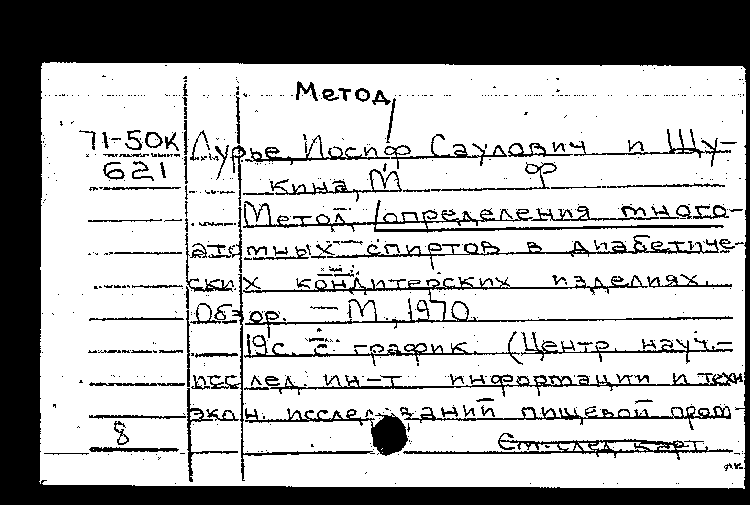 Метод
71-50к Лурье, Иосиф Саулович и Щу-
621 кина, М ф
Метод определения много-
атомных спиртов в диабетиче-
ских кондитерских изделиях.
Обзор. — М., 1970.
19с. с график. (Центр. науч.-
исслед. ин-т информации и техн
экон. исследований пищевой пром-
8 См. след. карт.